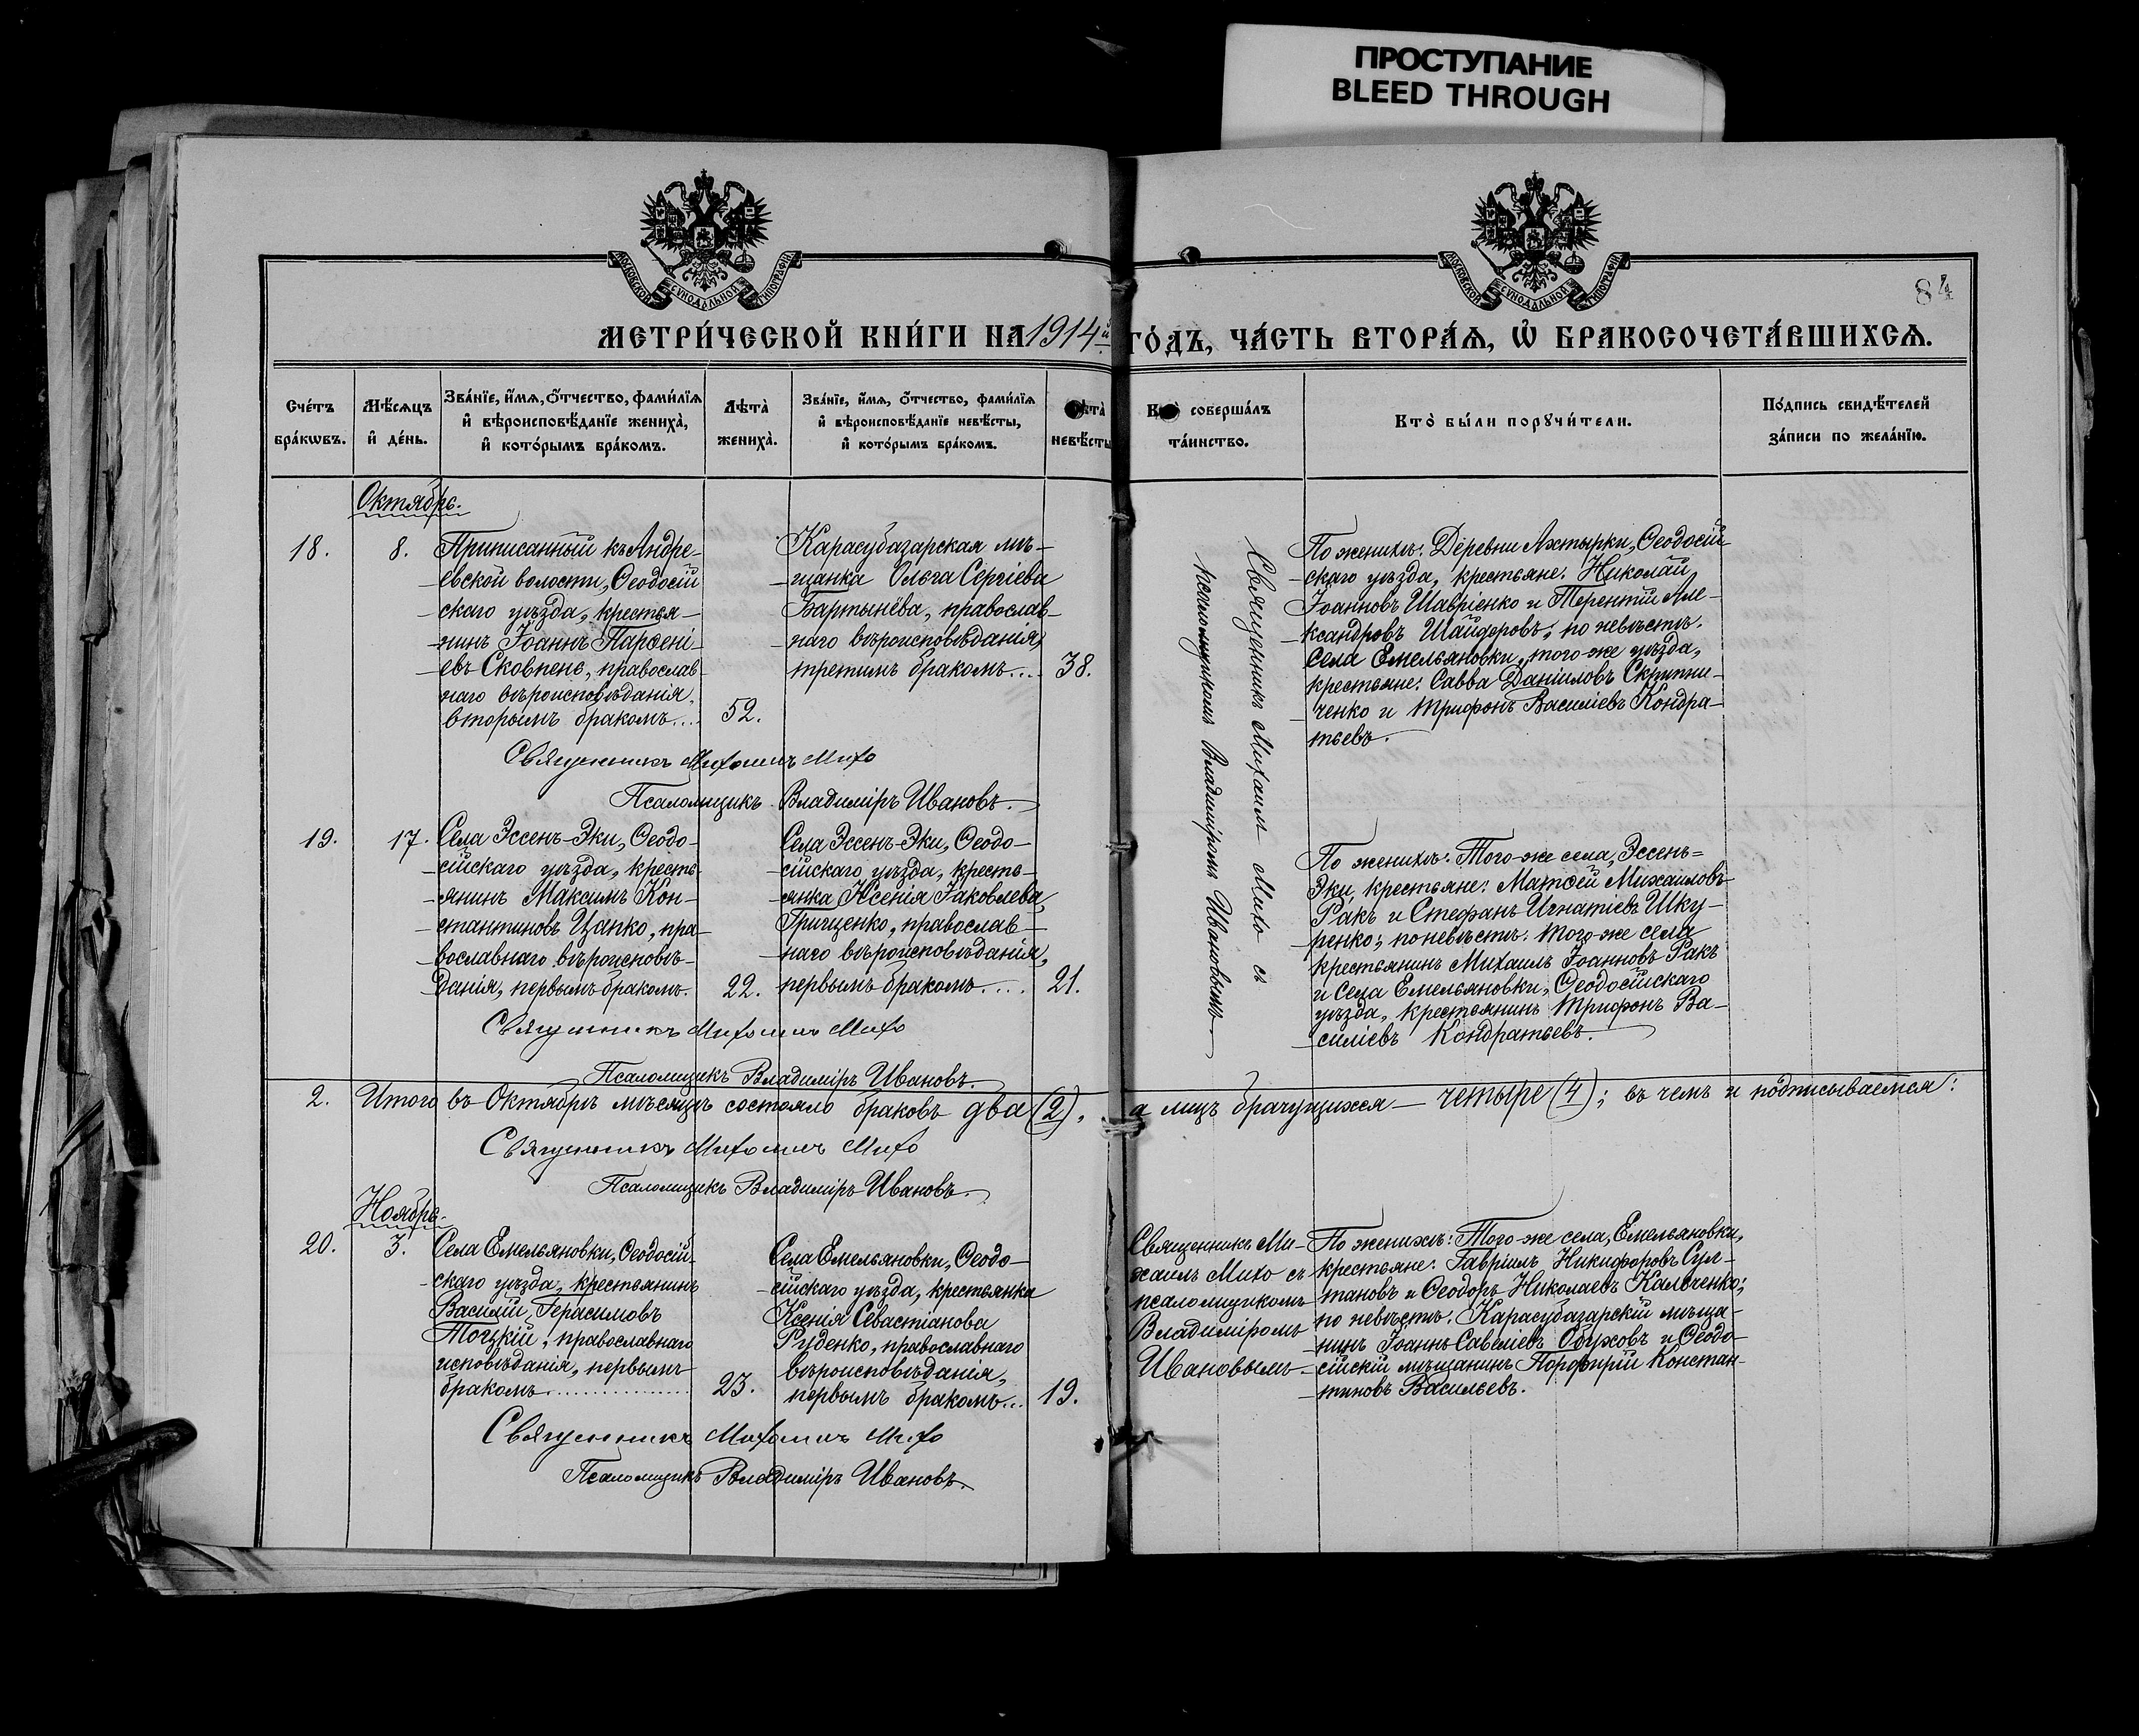 ПРОСТУПАНИЕ
BLEED THROUGH
МОСКОВСКОЙ СѴНОДАЛЬНОЙ ТИПОГРАФІИ
МОСКОВСКОЙ СѴНОДАЛЬНОЙ ТИПОГРАФІИ
84
МЕТРИ́ЧЕСКОЙ КНИ́ГИ НА 1914й ГО́ДЪ, ЧА́СТЬ ВТОРА́Ѧ, Ѡ҆ БРАКОСОЧЕТА́ВШИХСѦ.
Сче́тъ
бра́кѡвъ.
Мѣ́сѧцъ
и҆ де́нь.
Зва́нїе, и҆́мѧ, о҆́тчество, фами́лїѧ
и҆ вѣроисповѣ́данїе жениха̀,
и҆ кото́рымъ бра́комъ.
Лѣта̀
жениха̀.
Зва́нїе, и҆́мѧ, о҆́тчество, фами́лїѧ
и҆ вѣроисповѣ́данїе невѣ́сты,
и҆ кото́рымъ бра́комъ.
Лѣта̀
невѣ́сты
Кто̀ соверша́лъ
та́инство.
Кто̀ бы́ли порꙋчи́тели.
По́дпись свидѣ́телей
за́писи по жела́нїю.
Октябрь.
18.
8.
Приписанный къ Андре-
-евской волости, Ѳеодосій
-скаго уѣзда, крестья-
-нинъ Іоаннъ Парѳені-
-евъ Сковпень, православ-
наго вѣроисповѣданія,
вторымъ бракомъ...
52.
Карасубазарская мѣ-
-щанка Ольга Сергіева
Бартынёва, православ-
-наго вѣроисповѣданія,
третимъ бракомъ....
38.
Священникъ Михаилъ Михо съ
псаломщикомъ Владиміромъ Ивановымъ
По женихѣ: Деревни Ахтырки, Ѳеодосій-
-скаго уѣзда, крестьяне: Николай
Іоанновъ Шавріенко и Терентій Але-
-ксандровъ Шайдоровъ; по невѣстѣ:
села Емельяновки, того-же уѣзда,
крестьяне: Савва Даніиловъ Скрипни-
-ченко и Трифонъ Василіевъ Кондра-
тьевъ.
Священникъ Михаилъ Михо
Псаломщикъ Владиміръ Ивановъ.
19.
17.
Села Эссенъ-Эки, Ѳеодо-
-сійскаго уѣзда, кресть-
-янинъ Максимъ Кон-
-стантиновъ Цапко, пра-
-вославнаго вѣроисповѣ-
-данія, первымъ бракомъ.
22.
Села Эссенъ-Эки, Ѳеодо-
-сійскаго уѣзда, кресть-
-янка Ксенія Іаковлева
Грищенко, православ-
-наго вѣроисповѣданія,
первымъ бракомъ....
21.
По женихѣ: Того-же села, Эссенъ-
Эки, крестьяне: Матѳей Михаиловъ
Ракъ и Стефанъ Игнатіевъ Шку-
-ренко; по невѣстѣ: того-же села
крестьянинъ Михаилъ Іоанновъ Ракъ
и Села Емельяновки, Ѳеодосійскаго
уѣзда, крестьянинъ Трифонъ Ва-
-силіевъ Кондратьевъ.
Священникъ Михаилъ Михо
Псаломщикъ Владиміръ Ивановъ.
2. Итого въ Октябрѣ мѣсяцѣ состояло браковъ два (2), а лицъ брачущихся — четыре (4); въ чемъ и подписываемся:
Священникъ Михаилъ Михо
Псаломщикъ Владиміръ Ивановъ.
Ноябрь.
20.
3.
Села Емельяновки, Ѳеодосій-
-скаго уѣзда, крестьянинъ
Василій Герасимовъ
Тоцкій, православнаго
исповѣданія, первымъ
бракомъ................
23.
Села Емельяновки, Ѳеодо-
-сійскаго уѣзда, крестьянка
Ксенія Севастіанова
Руденко, православнаго
вѣроисповѣданія,
первымъ бракомъ...
19.
Священникъ Ми-
хаилъ Михо съ
псаломщикомъ
Владиміромъ
Ивановымъ
По женихѣ: Того-же села, Емельяновки,
крестьяне: Гавріилъ Никифоровъ Сул-
-тановъ и Ѳеодоръ Николаевъ Кальченко;
по невѣстѣ: Карасубазарскій мѣща-
-нинъ Іоаннъ Савеліевъ Обуховъ и Ѳеодо-
-сійскій мѣщанинъ Порфирій Констан-
-тиновъ Васильевъ.
Священникъ Михаилъ Михо
Псаломщикъ Владиміръ Ивановъ.